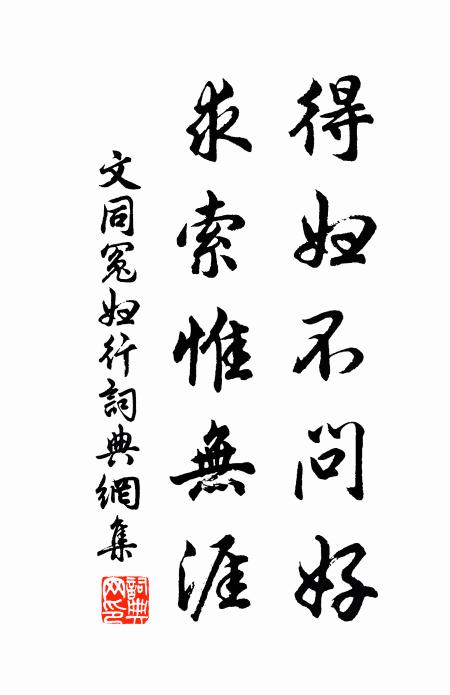 得妇不问好
求索惟無涯
文同冤妇行詞典網集
詞典網印